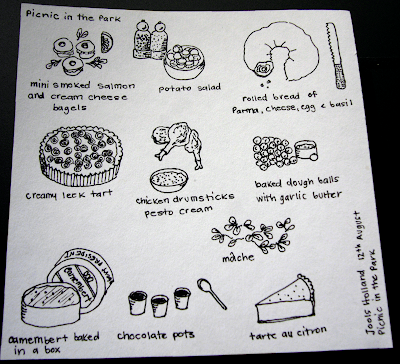 Picnic in the Park
mini smoked salmon
and cream cheese
bagels
potato salad
rolled bread of
Parma, cheese, egg & basil
creamy leek tart
chicken drumsticks
pesto cream
baked dough balls
with garlic butter
mâche
camembert baked
in a box
chocolate pots
tarte au citron
Jools Holland 12th August
Picnic in the Park